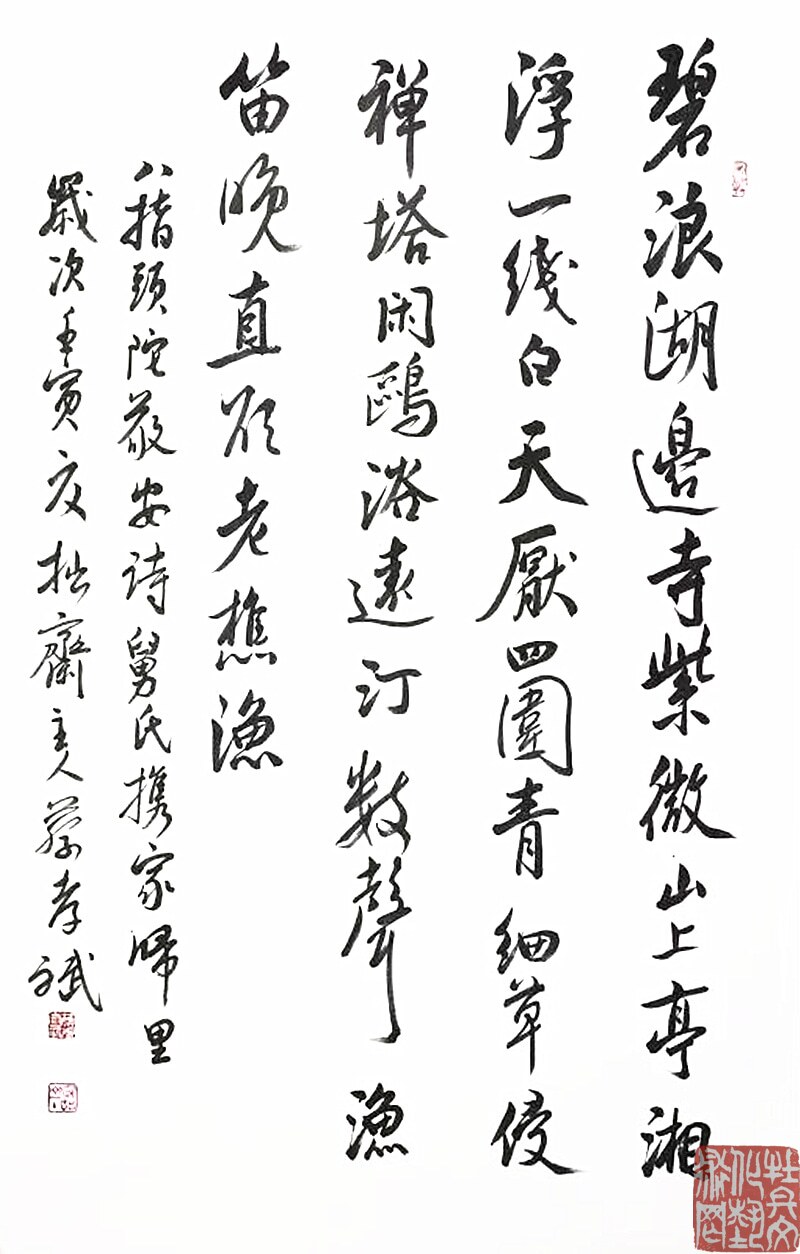 碧浪湖邊寺紫微山上亭湘
浮一綫白天厭四圍青細草侵
禅塔闲鷗浴遠汀數聲漁
笛晚直欲老樵漁
八指頭陀敬安詩舅氏携家歸里
歲次壬寅夏拙齋主人蔡孝斌